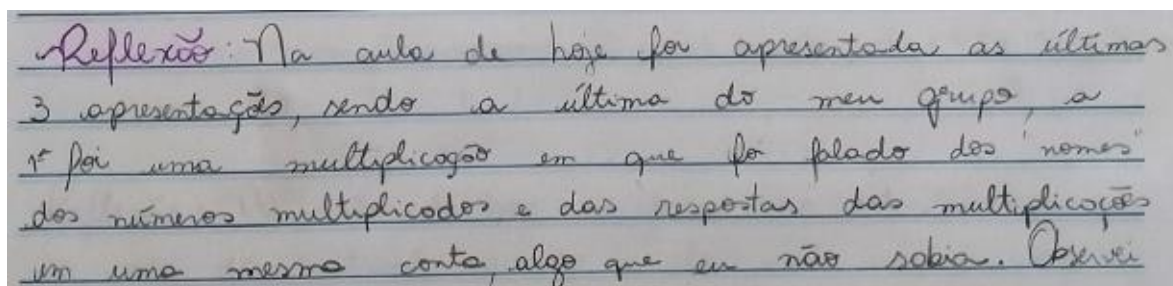 Reflexão: Na aula de hoje foi apresentada as últimas
3 apresentações, sendo a última do meu grupo, a
1ª foi uma multiplicação em que foi falado dos "nomes"
dos números multiplicados e das respostas das multiplicações
em uma mesma conta, algo que eu não sabia. Observei